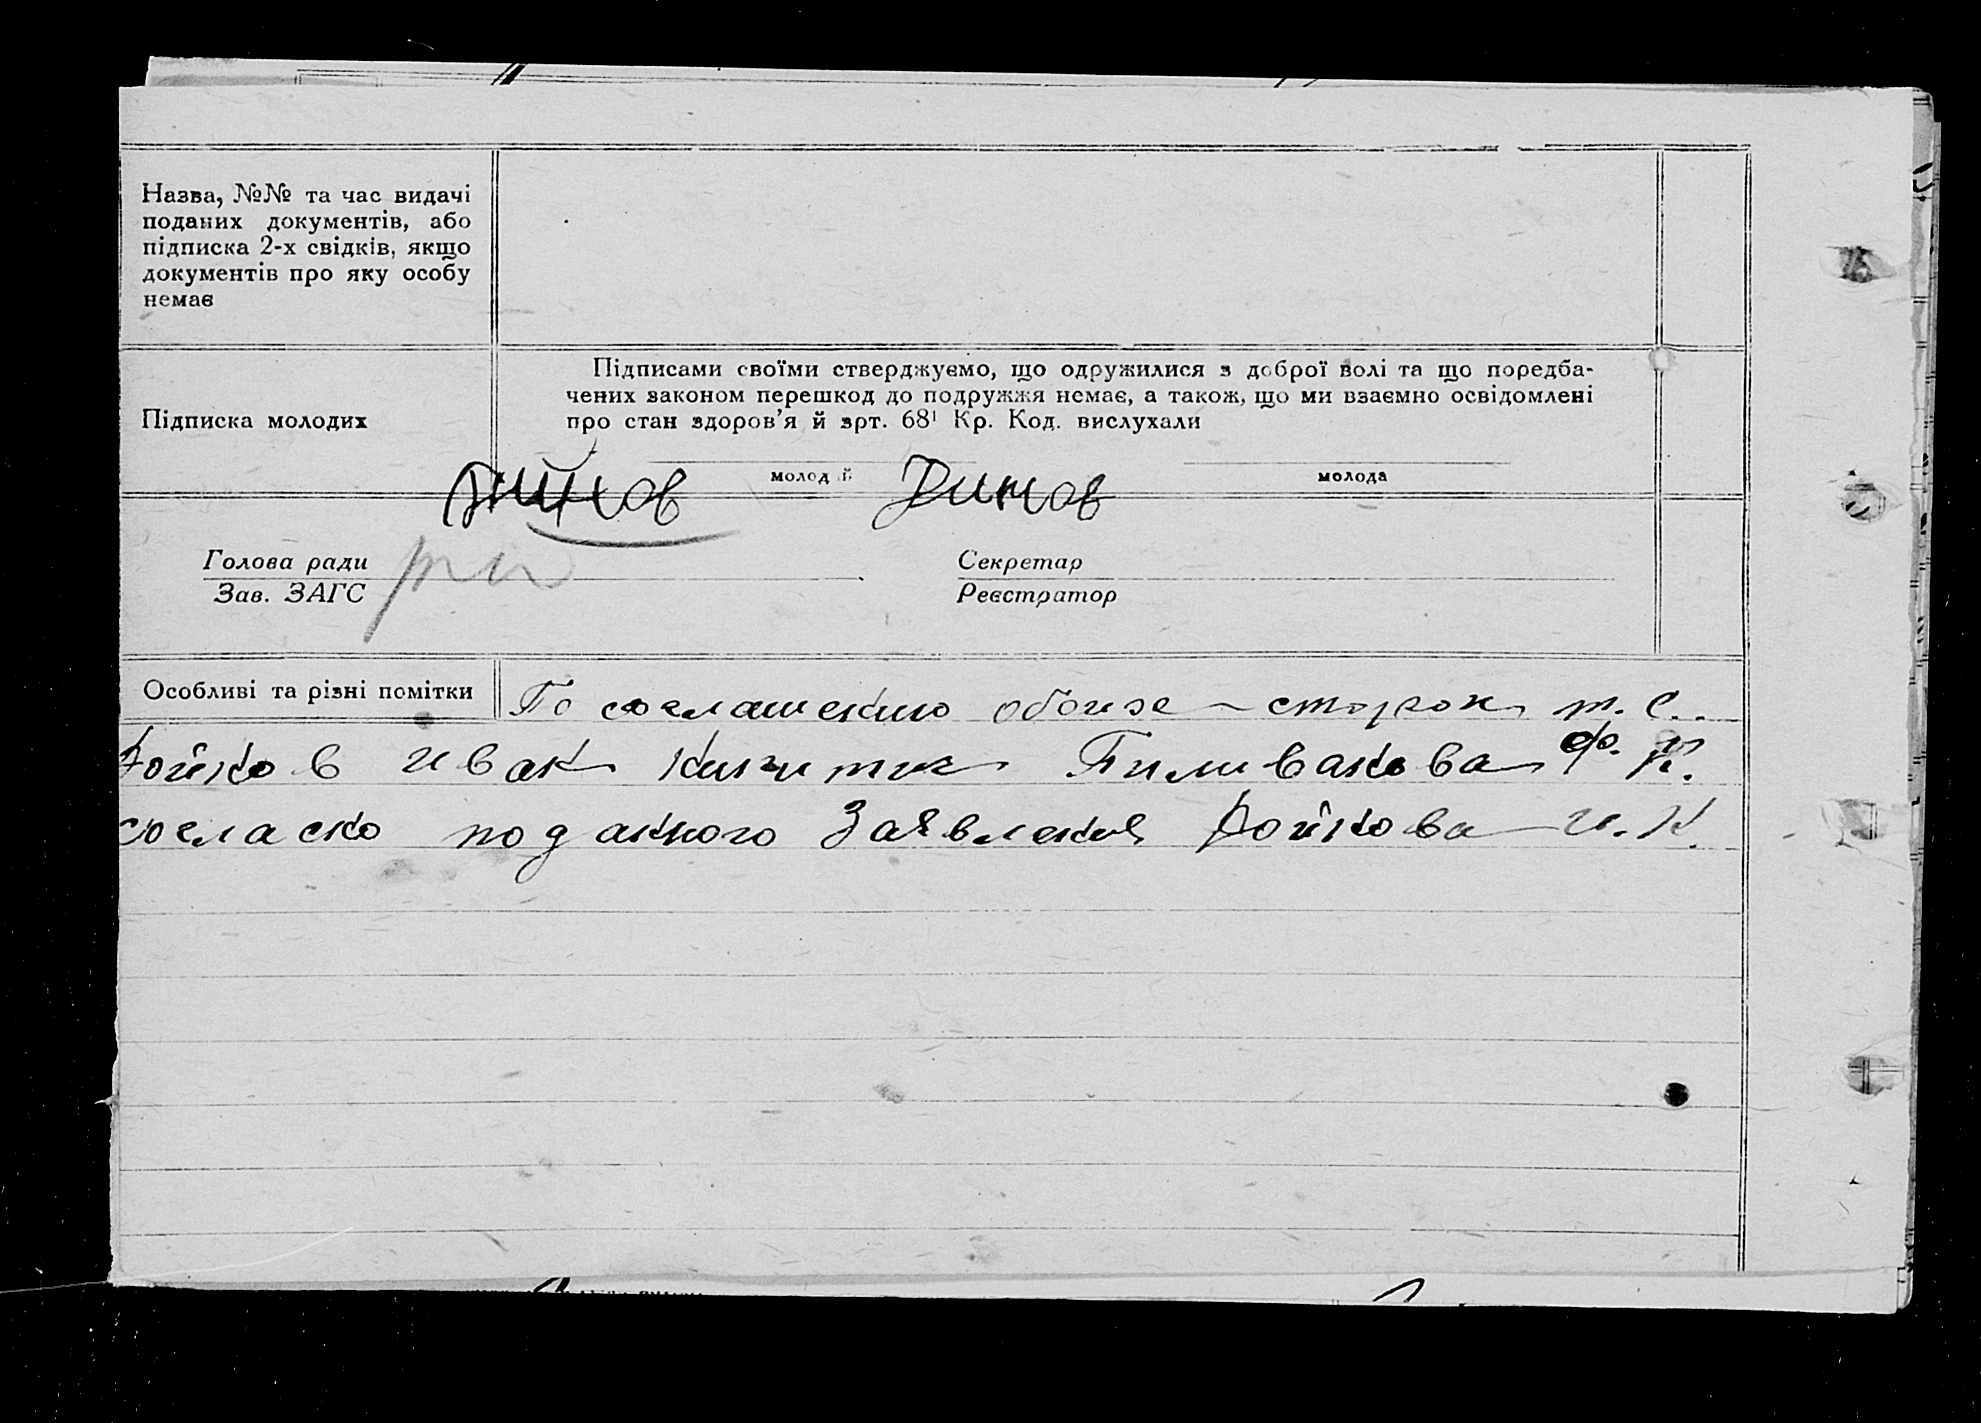 Назва, №№ та час видачі
поданих документів, або
підписка 2-х свідків, якщо
документів про яку особу
немає
Підписами своїми стверджуємо, що одружилися з доброї волі та що поредба-
чених законом перешкод до подружжя немає, а також, що ми взаємно освідомлені
про стан здоров'я й врт. 68¹ Кр. Код. вислухали
Підписка молодих
молодий молода
Динов
Голова ради Секретар
Зав. ЗАГС Реєстратор
Особливі та різні помітки По соглашению обоизе сторон т. С.
Бойков иван Кипитик Пиливанова Ф. П.
согласно поданного Заявления Бойкова И. К.